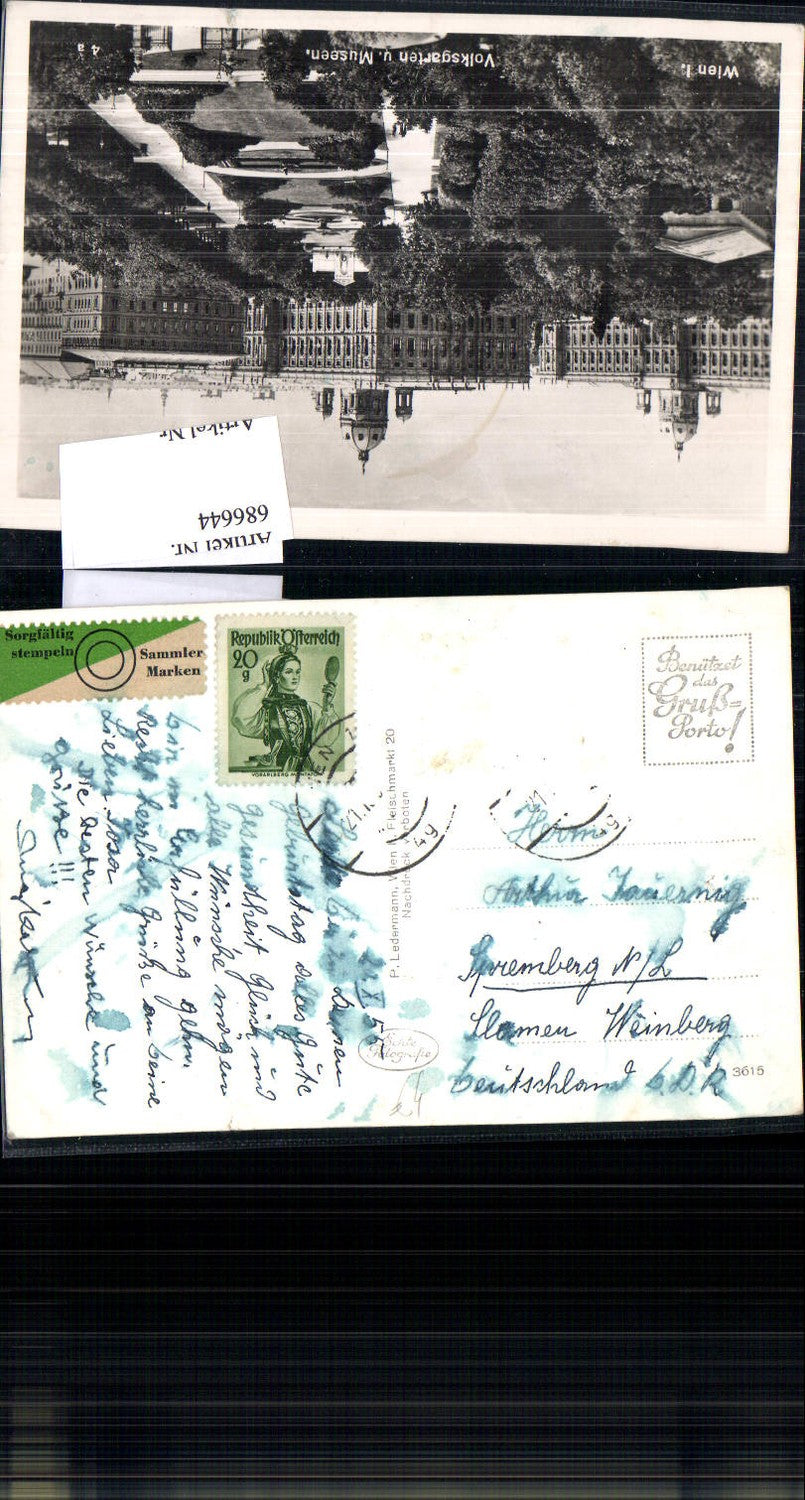 Wien I.
Volksgarten u. Museen.
4 a
Artikel Nr.
686644
Artikel Nr.
Sorgfältig
stempeln
Sammler
Marken
Republik Österreich
20
g
VORARLBERG MONTAFON
Benützet
das
Gruß=
Porto!
P. Ledermann, Wien I, Fleischmarkt 20
Nachdruck verboten
Echte
Fotografie
3615
49
Herrn
Arthur Tauernig
Spremberg N/L
Slamen Weinberg
Deutschland D.D.R
Deinen
Geburtstag alles Gute
Gesundheit Glück und
alle Wünsche mögen
Dir in Erfüllung gehn.
Recht herzliche Grüße an Deine
Lieben
Die besten Wünsche und
Grüße !!!